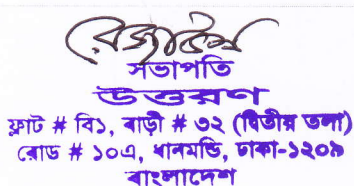 সভাপতি
উত্তরণ
ফ্লাট # বি১, বাড়ী # ৩২ (দ্বিতীয় তলা)
রোড # ১০এ, ধানমন্ডি, ঢাকা-১২০৯
বাংলাদেশ